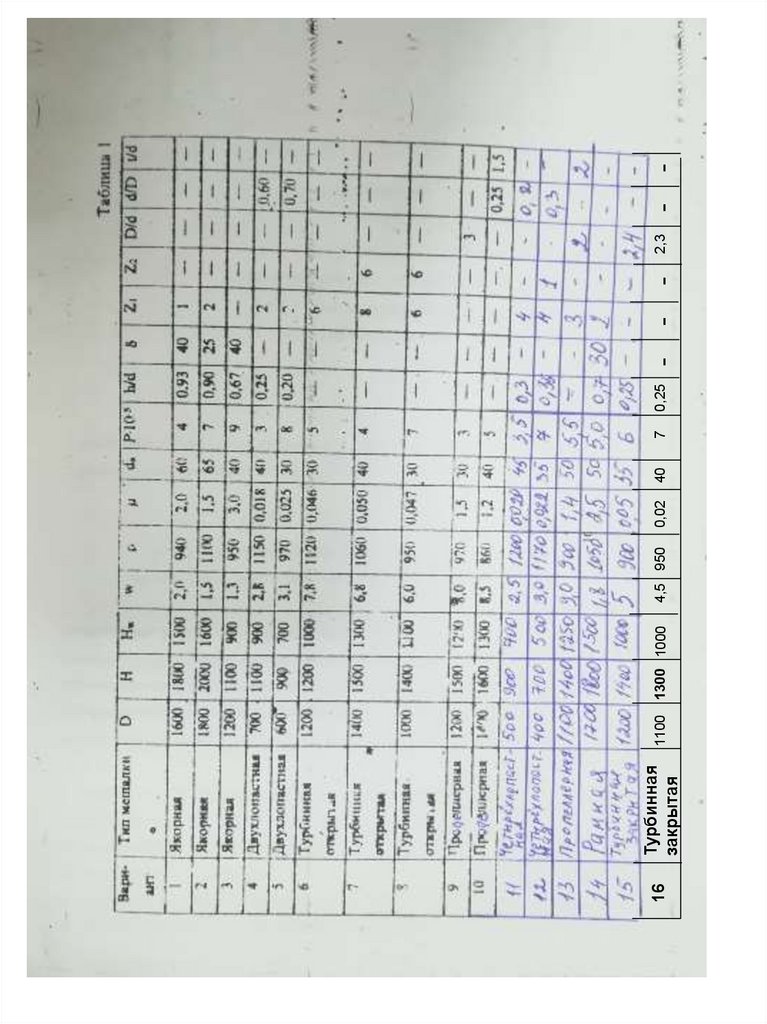 Таблица 1
Вари- Тип мешалки D H Hж w ρ μ dв P·10⁻³ h/d δ Z1 Z2 D/d d/D t/d
ант
1 Якорная 1600 1800 1500 2,0 940 2,0 60 4 0,93 40 1 — — — —
2 Якорная 1800 2000 1600 1,5 1100 1,5 65 7 0,90 25 2 — — — —
3 Якорная 1200 1100 900 1,3 950 3,0 40 9 0,67 40 — — — — —
4 Двухлопастная 700 1100 900 2,8 1150 0,018 40 3 0,25 — 2 — — 0,60 —
5 Двухлопастная 600 900 700 3,1 970 0,025 30 8 0,20 — 2 — — 0,70 —
6 Турбинная 1200 1200 1000 7,8 1120 0,046 30 5 — — 6 — — — —
открытая
7 Турбинная 1400 1500 1300 6,8 1060 0,050 40 4 — — 8 6 — — —
открытая
8 Турбинная 1000 1400 1100 6,0 950 0,047 30 7 — — 6 6 — — —
открытая
9 Пропеллерная 1200 1500 1200 8,0 970 1,5 30 3 — — — — 3 — —
10 Пропеллерная 1600 1300 8,5 860 1,2 40 5 — — — — — 0,25 1,5
11 Четырёхлопаст- 500 900 700 2,5 1200 0,020 45 3,5 0,3 - 4 - - 0,2 -
ная
12 Четырёхлопаст- 400 700 500 3,0 1170 0,022 35 7 - 4 1 - 0,3 -
ная
13 Пропеллерная 1100 1400 1250 9,0 900 1,4 50 5,5 - - 3 - 2 - 2
14 Рамная 1700 1800 1500 1,8 1050 2,5 50 5,0 0,7 30 2 - - - -
15 Турбинная 1200 1400 1000 5 900 0,05 35 6 0,25 - - - 2,4 - -
закрытая
16 Турбинная 1100 1300 1000 4,5 950 0,02 40 7 0,25 - - - 2,3 - -
закрытая